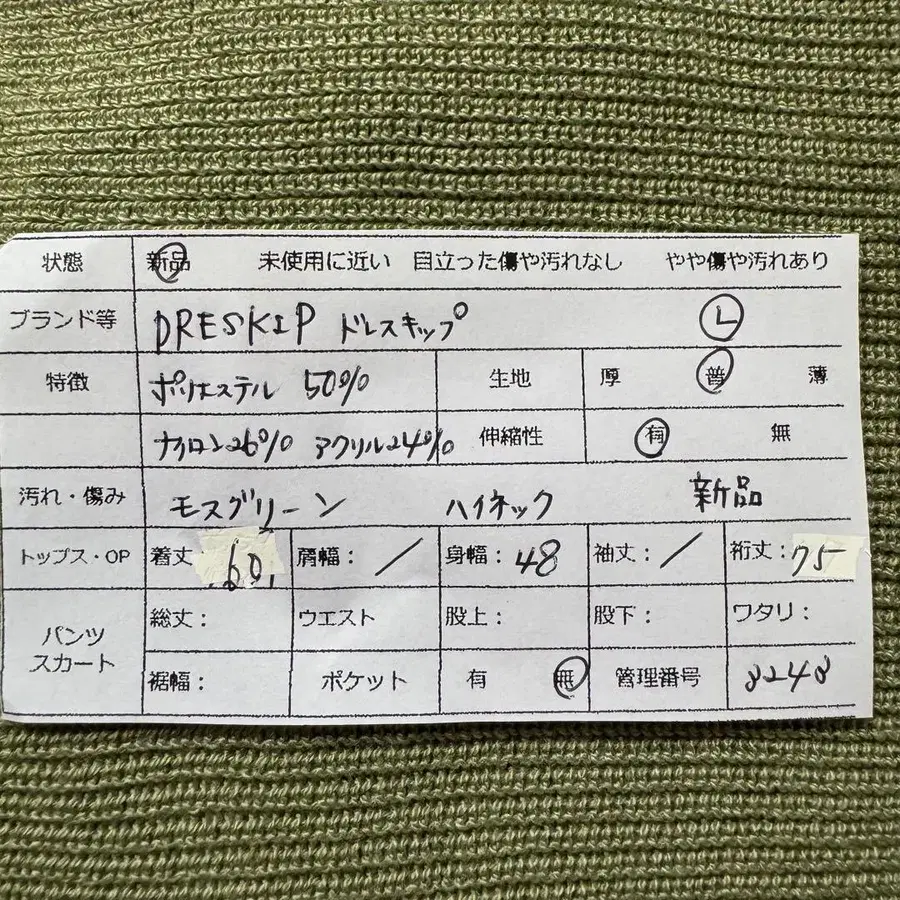 状態 新品 未使用に近い 目立った傷や汚れなし やや傷や汚れあり
ブランド等 DRESKIP ドレスキップ L
特徴 ポリエステル 50% 生地 厚 普 薄
ナイロン26% アクリル24% 伸縮性 有 無
汚れ・傷み モスグリーン ハイネック 新品
トップス・OP 着丈 60 肩幅: / 身幅: 48 袖丈: / 裄丈: 75
パンツ スカート 総丈: ウエスト 股上: 股下: ワタリ:
裾幅: ポケット 有 無 管理番号 8248